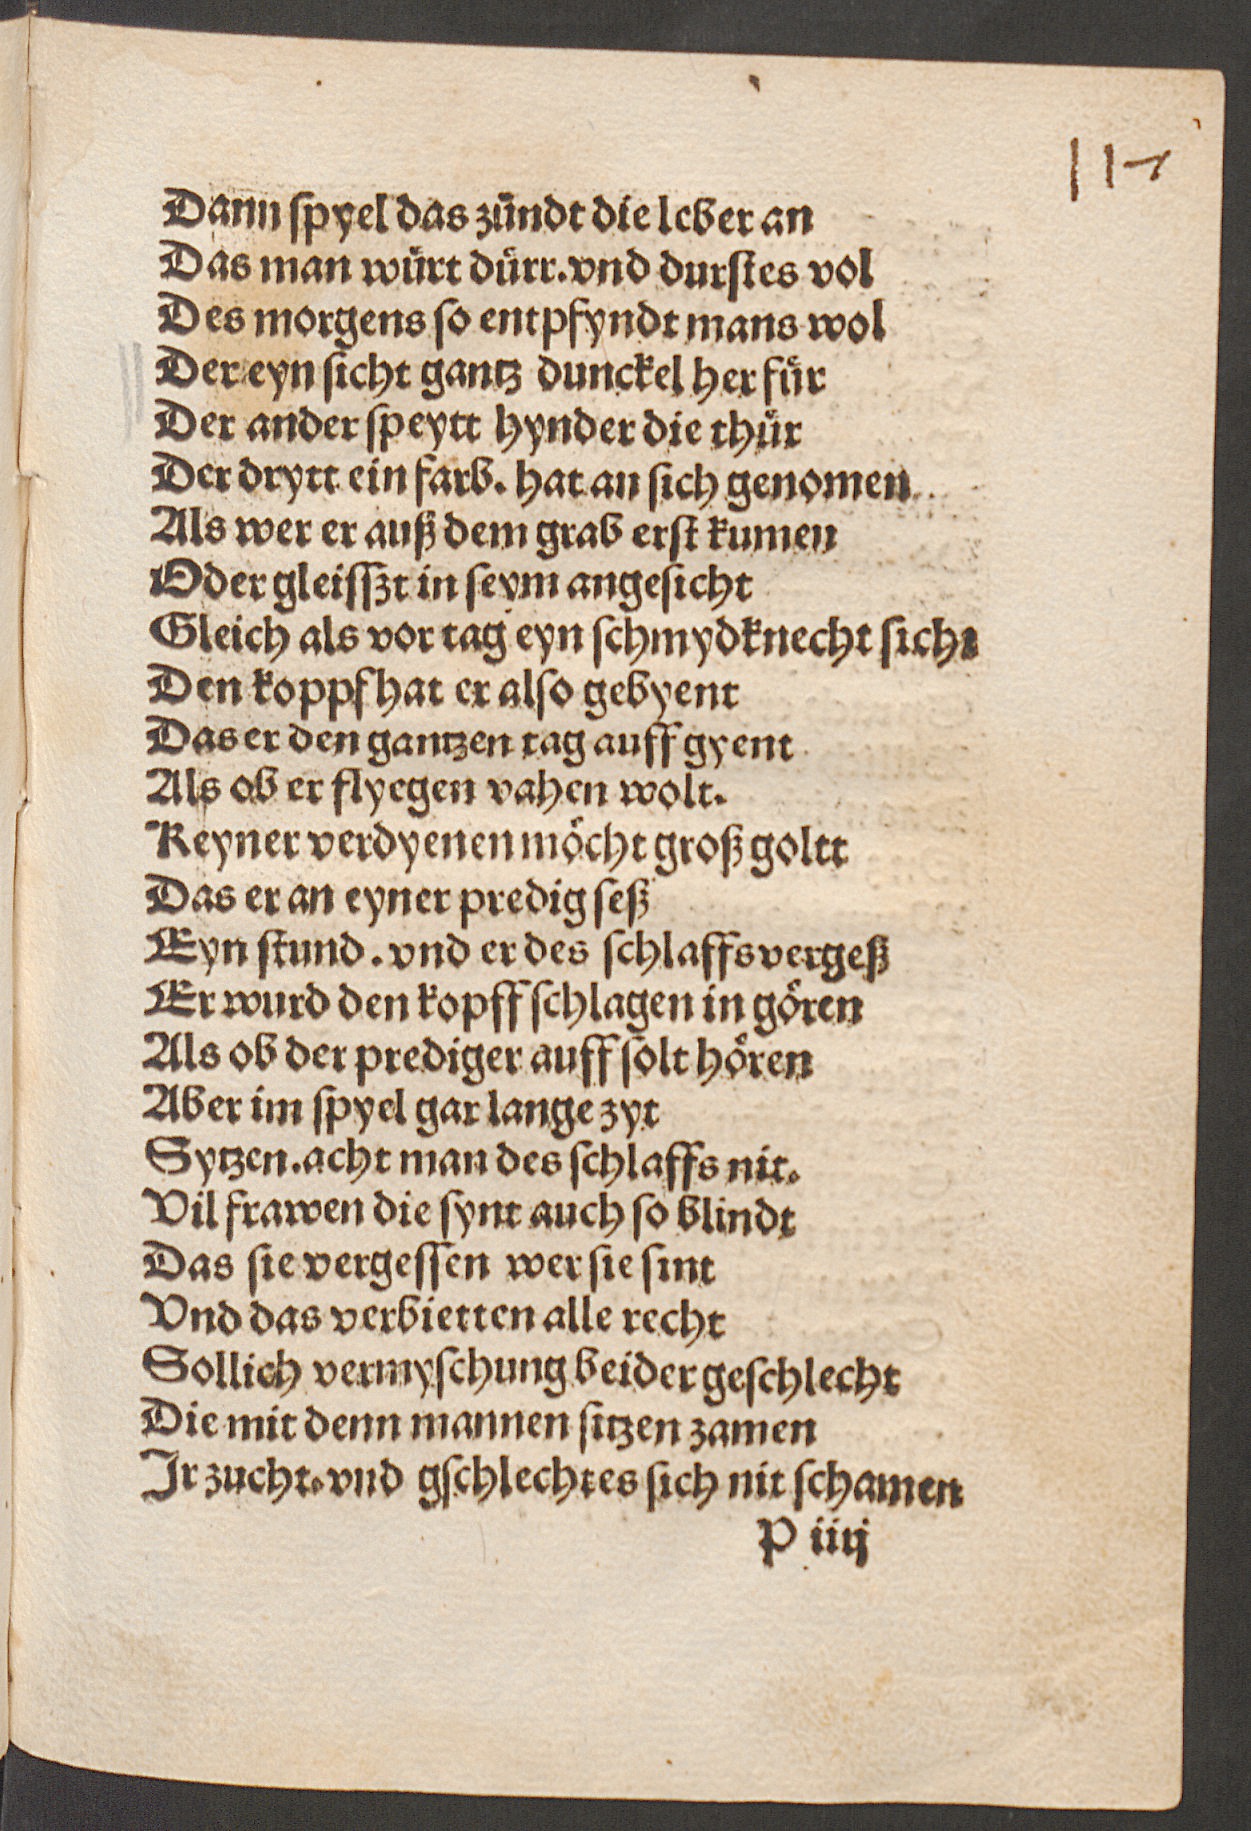 Dann spyel das zündt die leber an
Das man würt dürr. vnd durstes vol
Des morgens so entpfyndt mans wol
Der eyn sicht gantz dunckel her für
Der ander speytt hynder die thür
Der drytt ein farb. hat an sich genomen
Als wer er auß dem grab erst kumen
Oder gleisszt in seym angesicht
Gleich als vor tag eyn schmydknecht sicht
Den koppf hat er also gebyent
Das er den gantzen tag auff gyent
Als ob er flyegen vahen wolt.
Keyner verdyenen möcht groß goltt
Das er an eyner predig seß
Eyn stund. vnd er des schlaffs vergeß
Er wurd den kopff schlagen in gören
Als ob der prediger auff solt hören
Aber im spyel gar lange zyt
Sytzen. acht man des schlaffs nit.
Vil frawen die synt auch so blindt
Das sie vergessen wer sie sint
Vnd das verbietten alle recht
Sollich vermyschung beider geschlecht
Die mit denn mannen sitzen zamen
Ir zucht. vnd gschlechtes sich nit schamen
P iiij